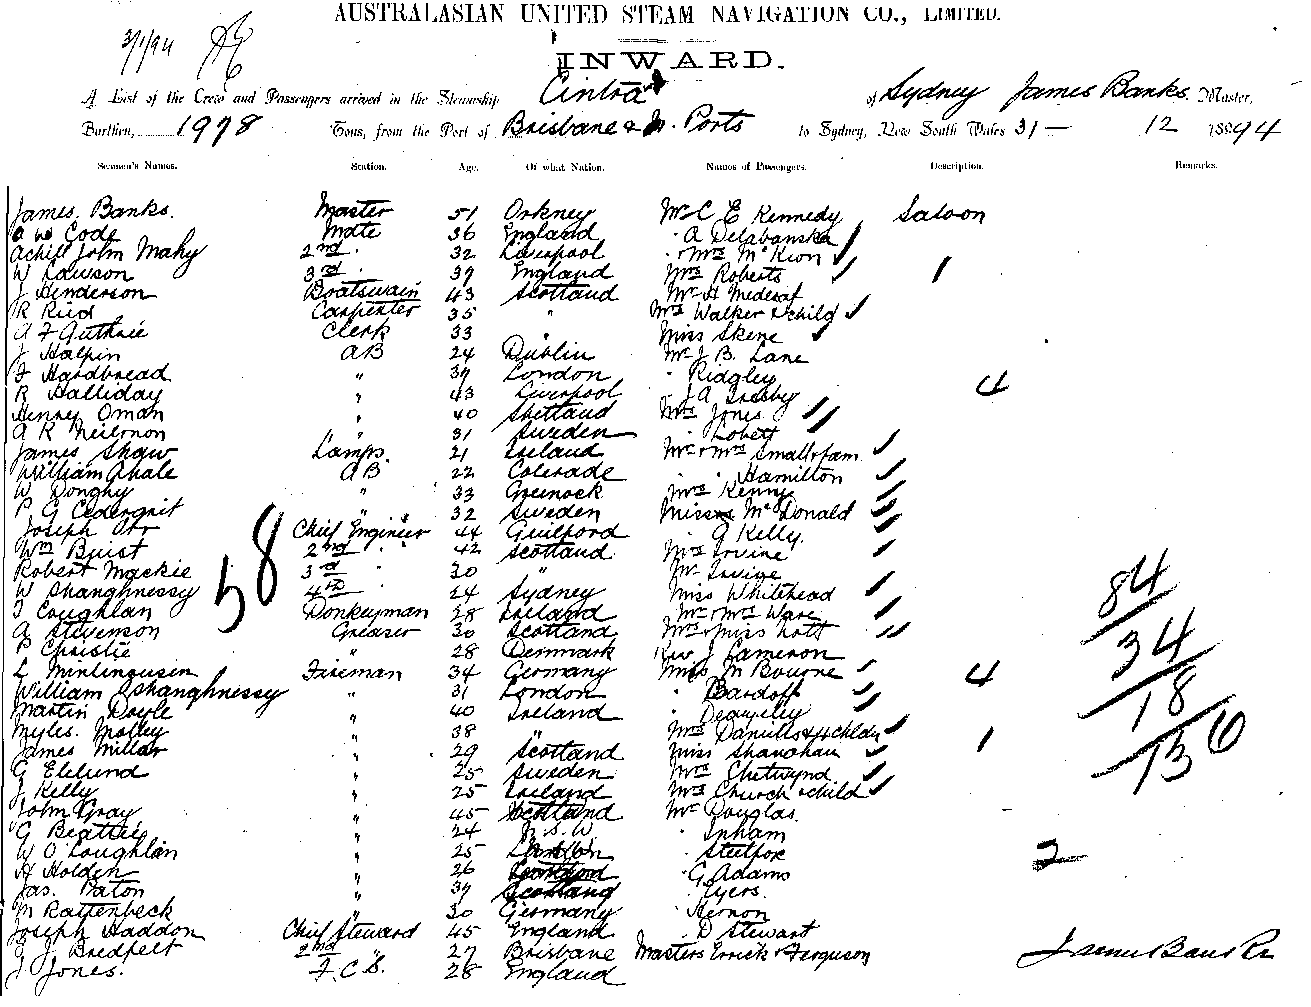 AUSTRALASIAN UNITED STEAM NAVIGATION CO., LIMITED.
3/1/94
INWARD.
A List of the Crew and Passengers arrived in the Steamship Cintra of Sydney James Banks. Master,
Burthen, 1978 Tons, from the Port of Brisbane & Ports to Sydney, New South Wales 31 — 12 1894
Seamen's Names. Station. Age. Of what Nation. Names of Passengers. Description. Remarks.
James. Banks. Master 51 Orkney Mr C E Kennedy Saloon
Code Mate 36 England A Delabanska
Achill John Mahy 2nd 32 Liverpool Mrs McKion
W Lawson 3rd 39 England Mrs Roberts 1
J Henderson Boatswain 43 Scotland Mr H
R Reid Carpenter 35 " Mrs Walker & child
A F Guthrie Clerk 33 " Miss Skene
J Halpin AB 24 Dublin Mr J B. Lane
F Hardbread " 39 London " Ridgley 4
R Halliday " 43 Liverpool J A
Henry Oman " 40 Shetland Mrs Jones
A R Neilsnon " 31 Sweden " Lobett
James Shaw Lamps. 21 Ireland Mr & Mrs Small & fam
William Ghale AB 22 Colerade " " Hamilton
W Donghy " 33 Greenock Mrs Kenny
P G " 32 Sweden Misses McDonald
Joseph Orr Chief Engineer 44 Guilford " G Kelly.
Wm Buist 2nd " 42 Scotland Mrs Irvine
Robert Mackie 3rd " 30 " Mr Irvine
W Shanghnessy 4th " 24 Sydney Miss Whitehead
T Coughlan Donkeyman 28 Ireland Mr & Mrs Ware
A Stevenson Greaser 30 Scotland Mrs & Miss Lott
P Christie " 28 Denmark Rev J Cameron
L Minlingusin Fireman 34 Germany Miss M Bourne 4
William OShanghnessy " 31 London " Bardoff
Martin Doyle " 40 Ireland "
Myles. Molloy " 38 " Mrs Daniells & 4 chldn
James Millar " 29 Scotland Miss Shanahan 1
G Eklund " 25 Sweden Mrs Chetwynd
J Kelly " 25 Ireland Mrs Church & child
John Gray " 45 Scotland Mr Douglas.
G Beattie " 24 N. S. W " Inham
W O'Loughlan " 25
H Holden " 26 " G Adams
Jas. Paton " 39 Scotland " Ayers.
M Rattenbeck " 30 Germany " Hernon
Joseph Haddon Chief Steward 45 England " D Stewart
J Bredpelt 2nd " 27 Brisbane Masters Errick & Ferguson
J Jones. F. C. S. 28 England
58
84
34
18
136
2
James Banks